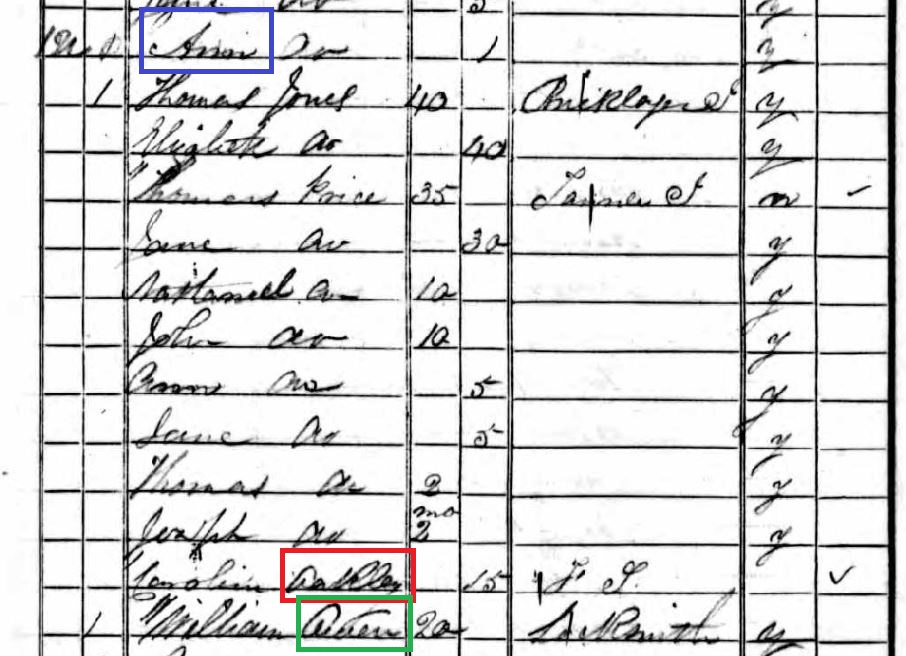 Ann do 1 y
1 Thomas Jones 40 y
Elizabeth do 40 y
Thomas Price 35 Tanner J n ✓
Jane do 30 y
Nathaniel do 10 y
John do 10 y
Ann do 5 y
Jane do 5 y
Thomas do 2 y
Joseph do 2 mo y
Caroline Oakley 15 F. S. ✓
1 William 20 Locksmith y